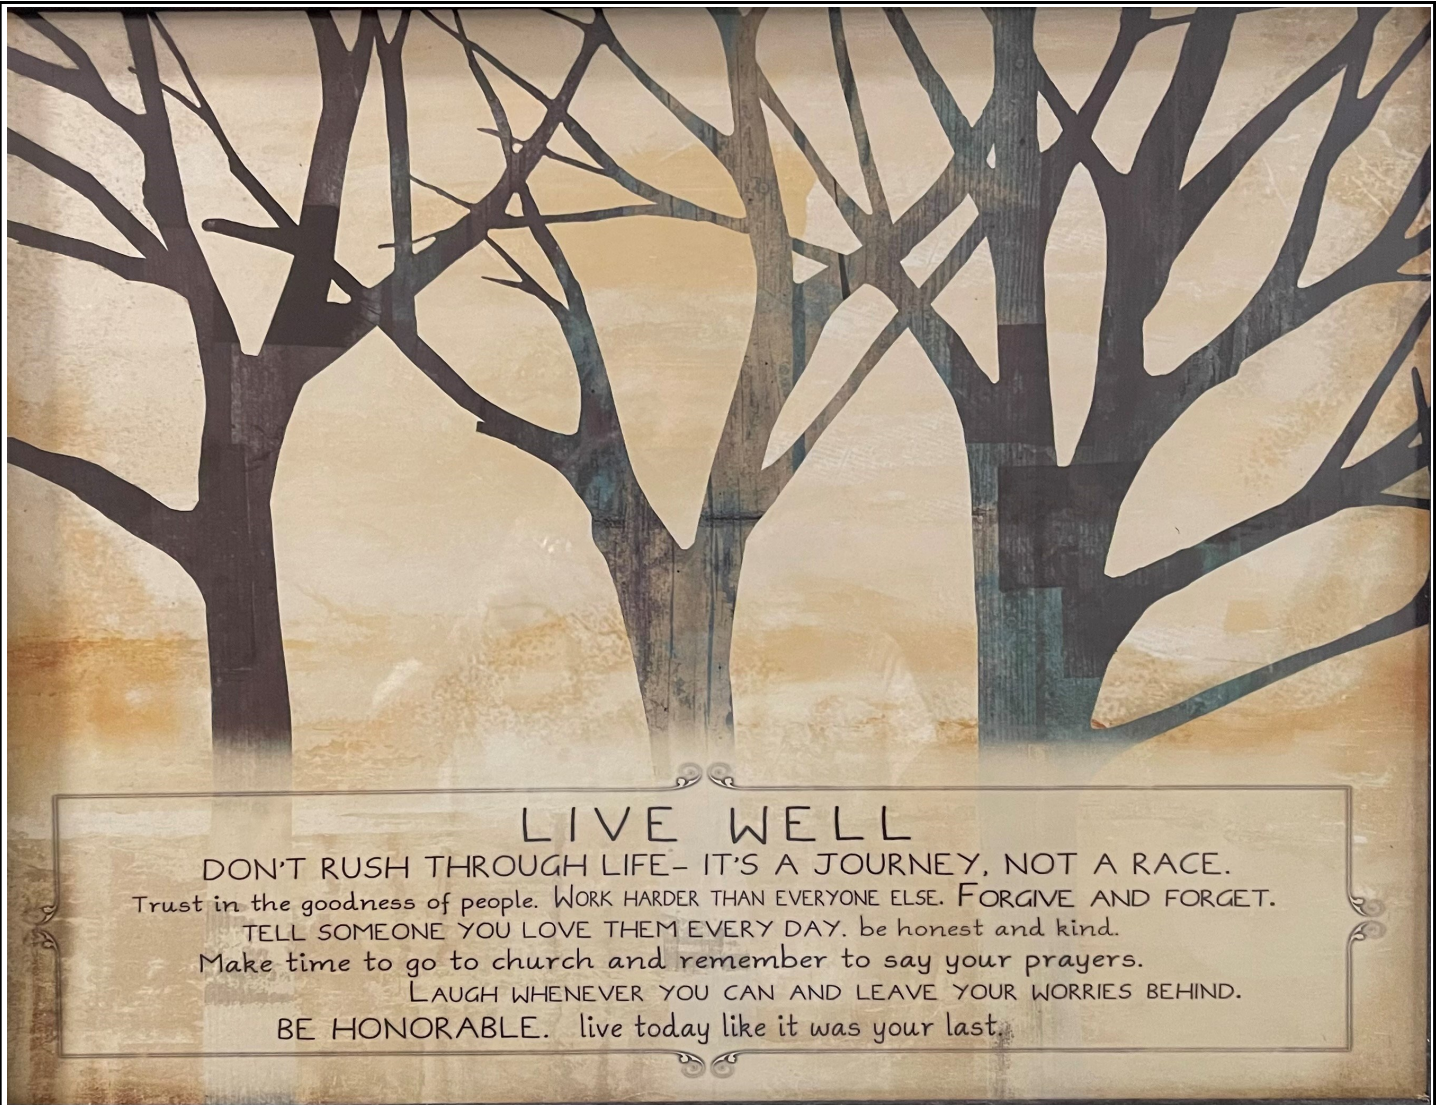 LIVE WELL
DON'T RUSH THROUGH LIFE– IT'S A JOURNEY, NOT A RACE.
Trust in the goodness of people. WORK HARDER THAN EVERYONE ELSE. FORGIVE AND FORGET.
TELL SOMEONE YOU LOVE THEM EVERY DAY. be honest and kind.
Make time to go to church and remember to say your prayers.
LAUGH WHENEVER YOU CAN AND LEAVE YOUR WORRIES BEHIND.
BE HONORABLE. live today like it was your last.